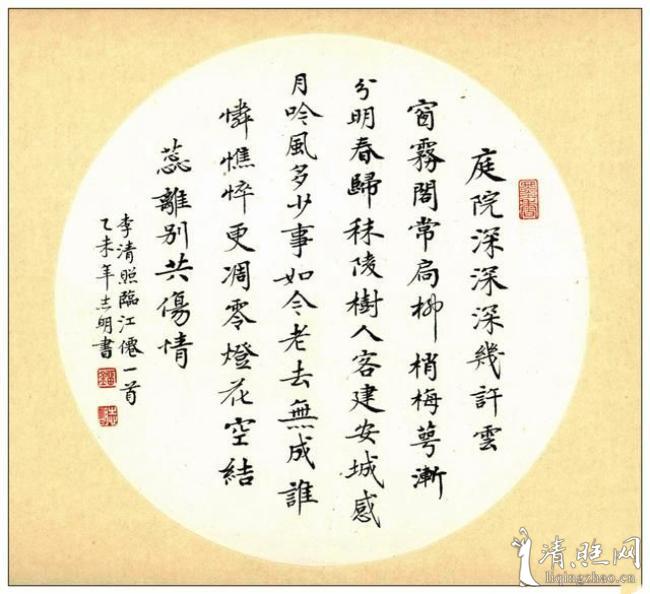 庭院深深深幾許雲
窗霧閣常扃柳梢梅萼漸
分明春歸秣陵樹人客建安城感
月吟風多少事如今老去無成誰
憐憔悴更凋零燈花空結
蕊離別共傷情
李清照臨江僊一首
乙未年志明書
清照网
liqingzhao.cn